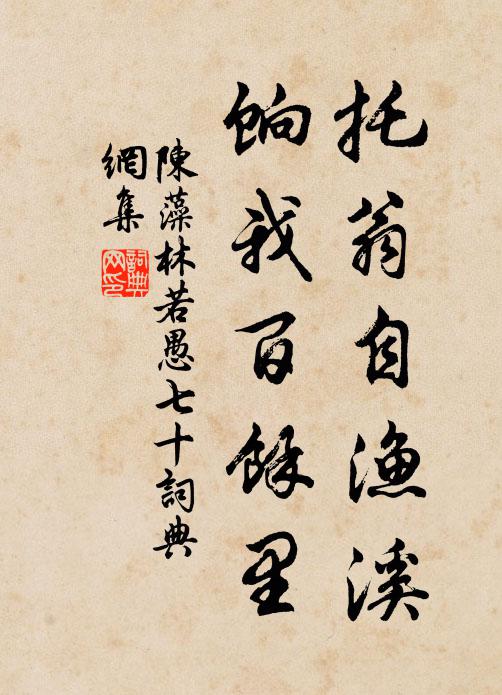 托翁自渔溪
餉我百餘里
陳藻林若愚七十詞典
網集
詞典
网印